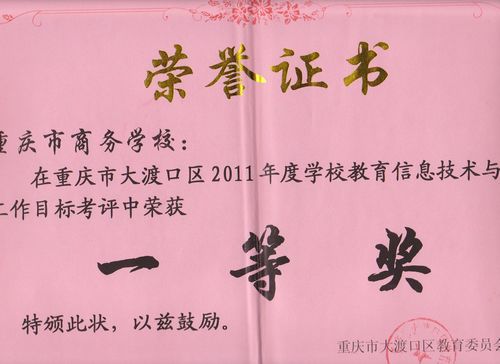 荣誉证书
重庆市商务学校：
在重庆市大渡口区2011年度学校教育信息技术与
工作目标考评中荣获
一等奖
特颁此状，以兹鼓励。
重庆市大渡口区教育委员会